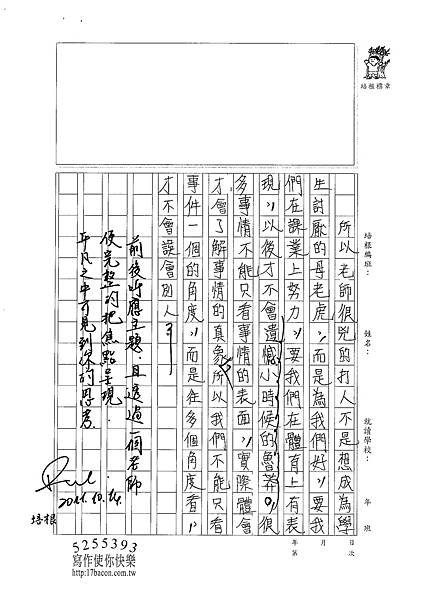 培根標章
培根編班：
姓名：
就讀學校：
年
班
所以老師很兇的打人不是想成為學
生討厭的母老虎，而是為我們好，要我
們在課業上努力，要我們在體育上有表
現，以後才不會遺憾小時候的魯莽。很
多事情不能只看事情的表面，實際體會
才會了解事情的真象，所以我們不能只看
事件一個的角度，而是在多個角度看，
才不會誤會別人。
前後呼應主題，且透過一個老師
便完整的把焦點呈現，
平凡之中可見到你的思考。
2011.10.14.
培根
年
月
日
第
次
5255393
寫作使你快樂
http://17bacon.com.tw